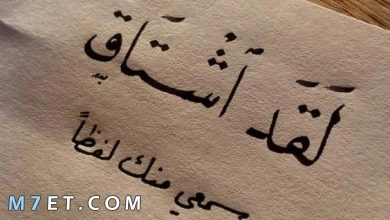 لَقَد اَشْتَاقِ
سمعي منك لفظاً
M7ET.COM